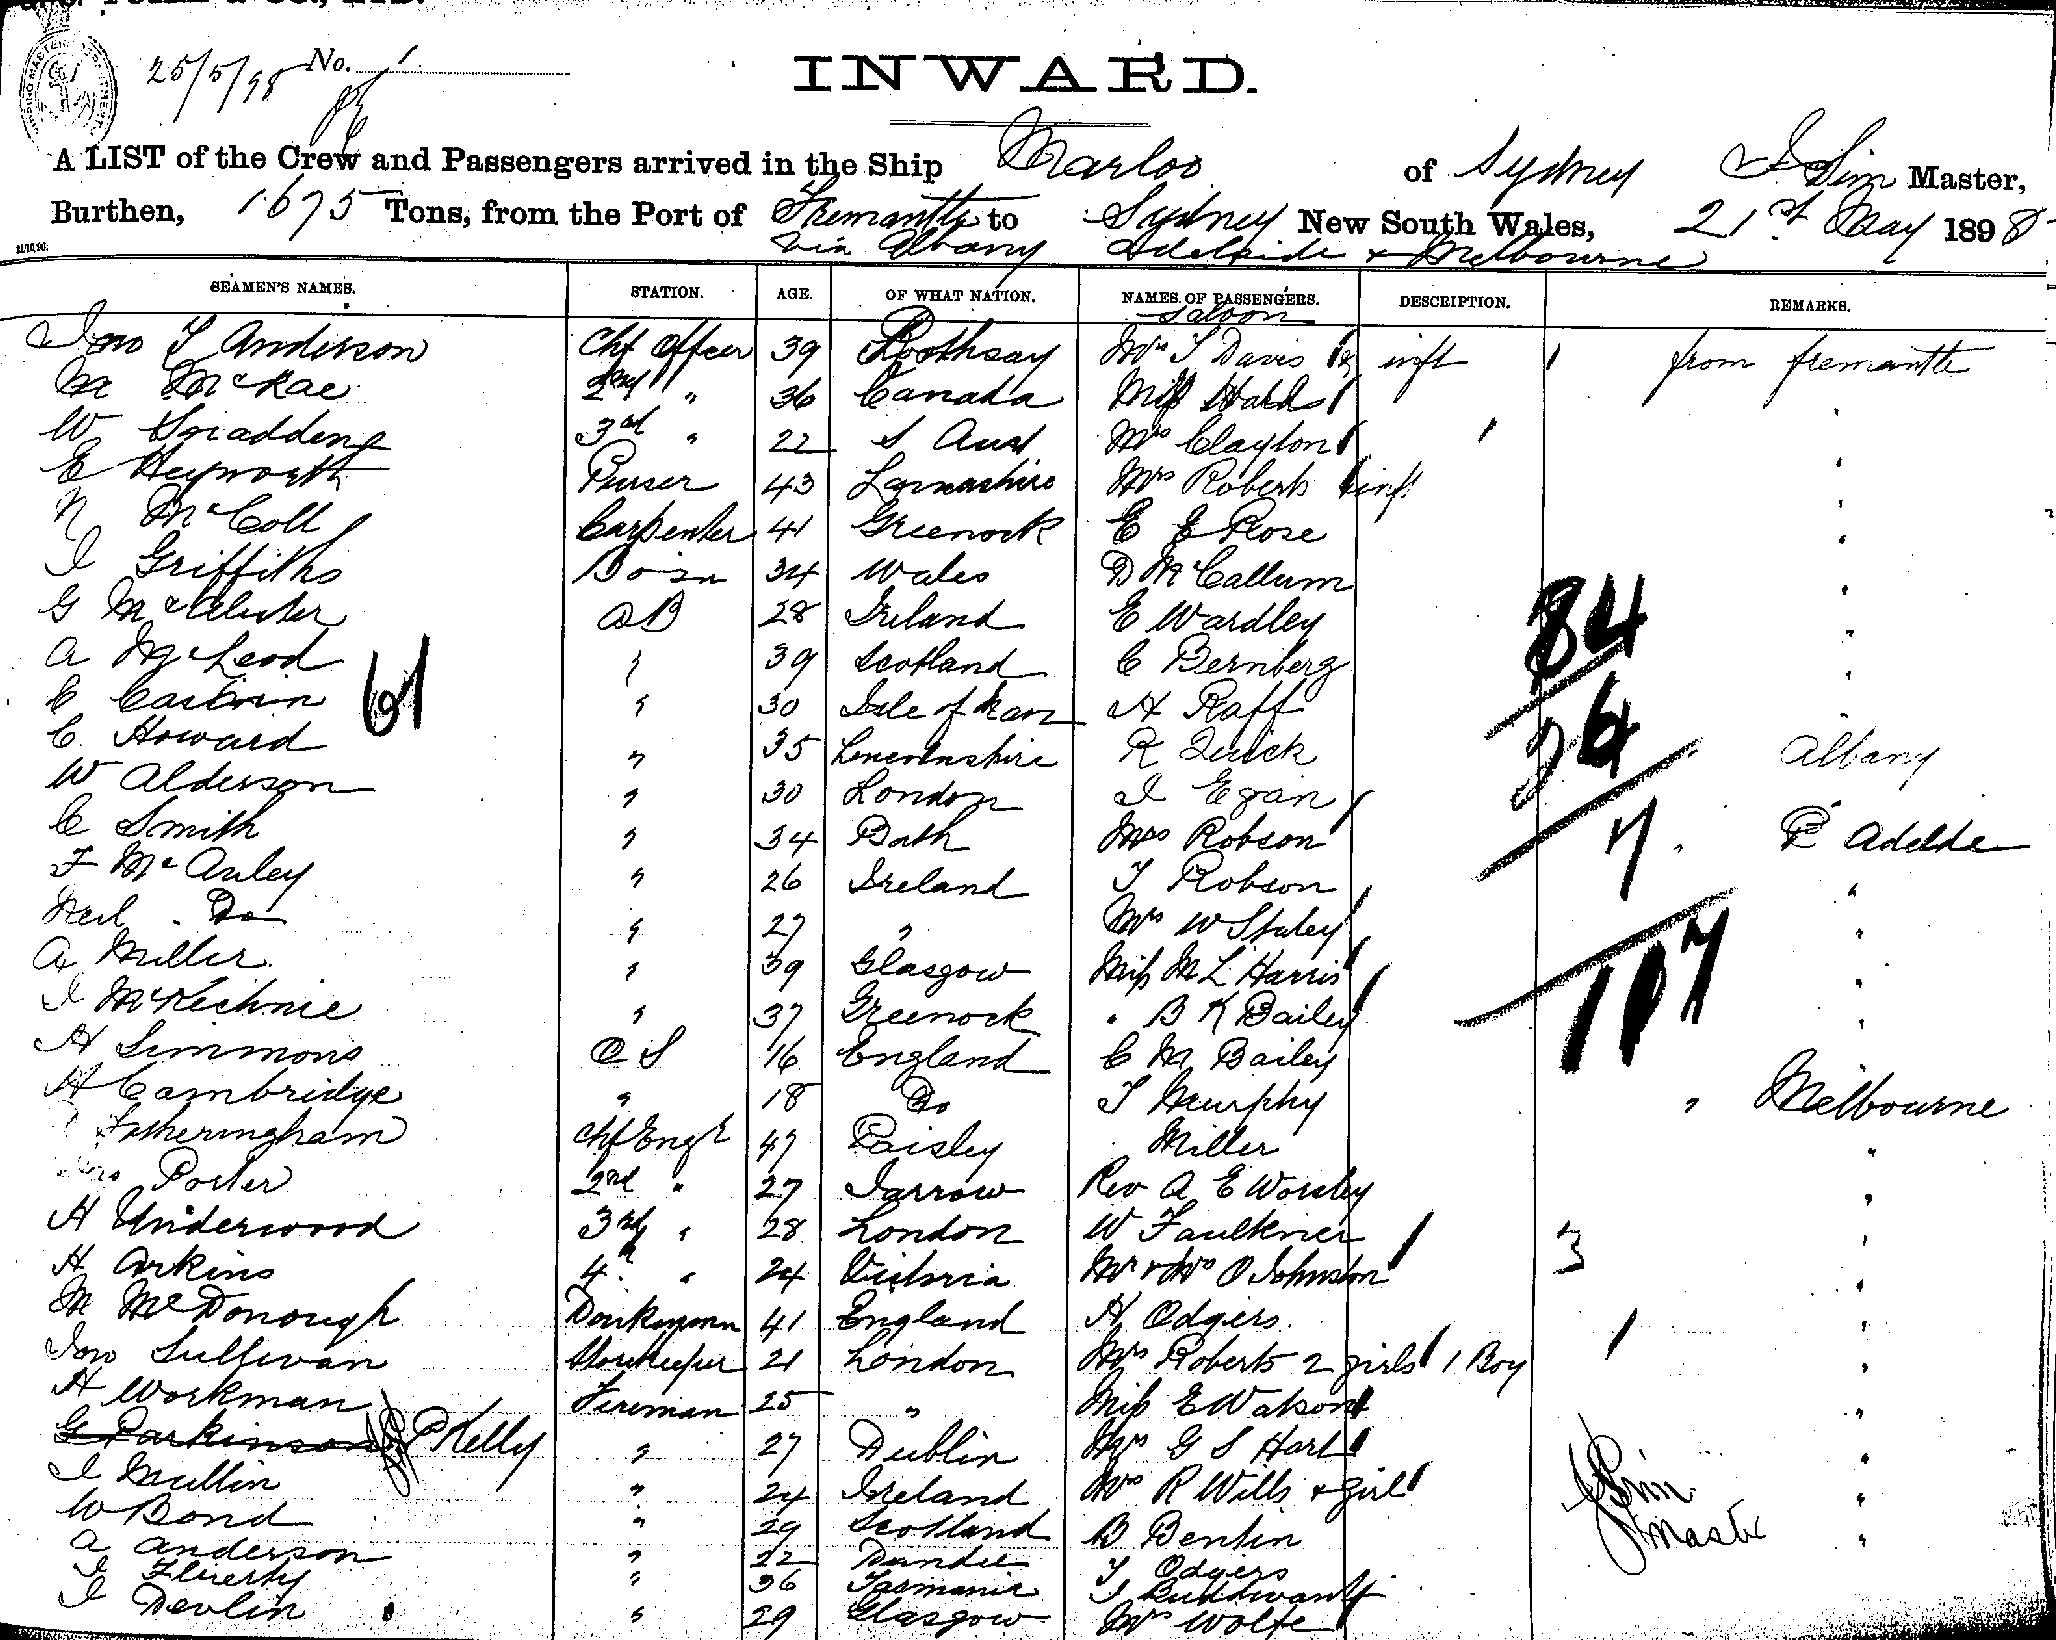 25/5/98 No. 1
INWARD.
A LIST of the Crew and Passengers arrived in the Ship Marloo of Sydney J Sim Master,
Burthen, 1675 Tons, from the Port of Fremantle to Sydney New South Wales, 21st May 1898
via Albany Adelaide & Melbourne
SEAMEN'S NAMES. STATION. AGE. OF WHAT NATION. NAMES OF PASSENGERS. DESCRIPTION. REMARKS.
Saloon
Jno T Anderson Chf Officer 39 Rothsay Mrs T Davis & inft 1 from fremantle
M McRae 2nd " 36 Canada Miss Hards "
W 3rd " 22 S Aust Mrs Clayton "
E Heyworth Purser 43 Lancashire Mrs Roberts inft "
N McColl Carpenter 41 Greenock E E Rose "
J Griffiths Bosn 34 Wales D McCallum "
G McAlister AB 28 Ireland E Wardley 84 "
A McLeod " 39 Scotland C Bernberg "
C 61 " 30 Isle of Man H Raff 26 "
C. Howard " 35 Lincolnshire R Quick Albany
W Alderson " 30 London J Egan "
C Smith " 34 Bath Mrs Robson 7 " P Adelde
F McAuley " 26 Ireland T Robson "
Neil Do " 27 " Mrs W Staley "
A Miller " 39 Glasgow Miss M L Harris 107 "
J McKechnie " 37 Greenock " B K Bailey "
H Simmons O S 16 England C M Bailey
H Cambridge " 18 Do T Murphy " Melbourne
Fotheringham Chf Engr 47 Paisley Miller "
Porter 2nd " 27 Jarrow Rev A E Worsley "
H Underwood 3rd " 28 London W Faulkner 3 "
H Arkins 4th " 24 Victoria Mr & Mrs O Johnston "
M McDonough Donkeyman 41 England H Odgers 1 "
Jno Sullivan Storekeeper 21 London Mrs Roberts 2 girls 1 Boy "
H Workman Fireman 25 " Miss E Watson "
G Parkinson P Kelly " 27 Dublin Mrs G S Hart "
J Mullin " 24 Ireland Mrs R Wills & girl J Sim "
W Bond " 29 Scotland B Bentin Master "
A Anderson " 22 Dundee T Odgers
J Fluerty " 36 Tasmania J
J Devlin " 29 Glasgow Mrs Wolfe